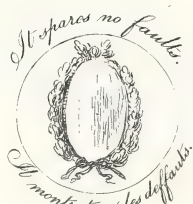 It spares no faults.
Il montre tous les deffauts.